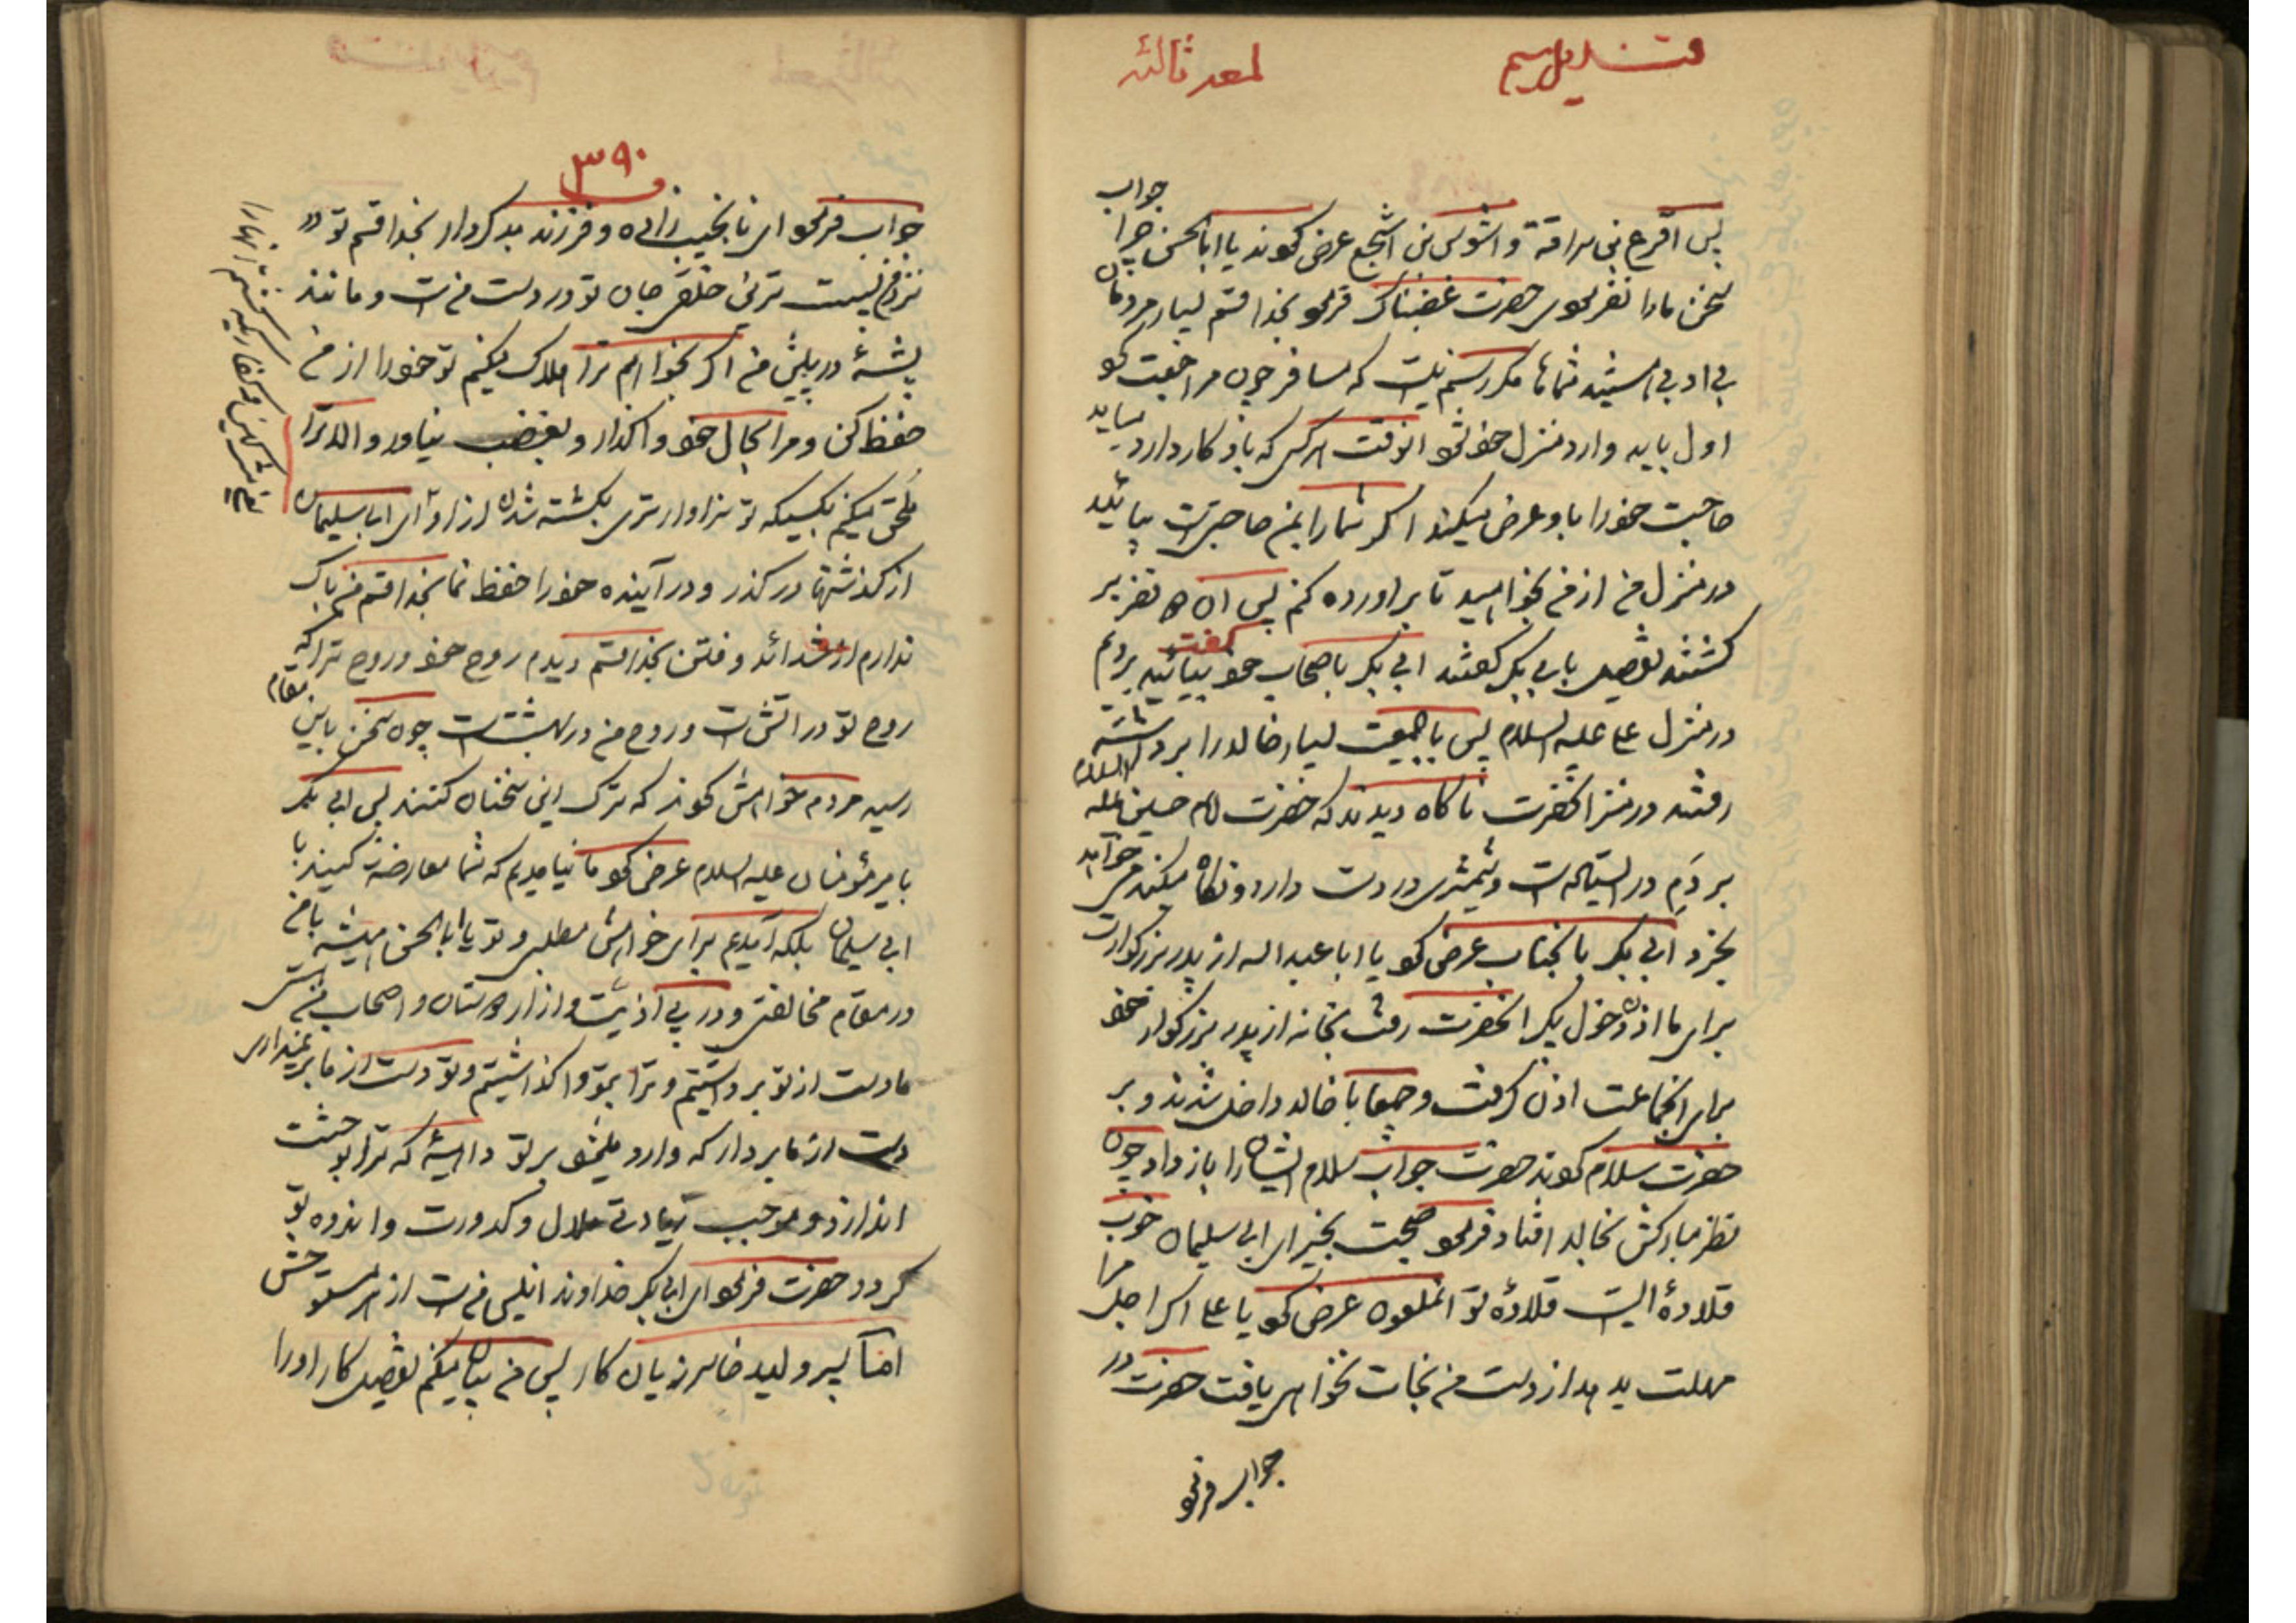 لمعه ثالثه
جواب
پس اقرع بن سراقة و اشوس بن اشجع عرض نمود یا ابا الحسن چرا
سخن مارا نفرمودی حضرت غضبناک فرمود بخدا قسم بسیار مردمان
بی ادبی هستید شماها مگر رسم نیست که مسافر چون مراجعت نمود
اول باید وارد منزل خود شود انوقت هر کس که باو کار دارد میاید
حاجت خود را باو عرض میکند اگر شما را بمن حاجتی است بیائید
در منزل من از من بخواهید تا براورده کنم پس
کشتند تفصیل بابی بکر گفتند ابی بکر باصحاب خود گفت بیائید برویم
در منزل علی علیه السلام پس با جمعیت بسیار خالد را برداشته
رفتند در منزل انحضرت ناگاه دیدند که حضرت امام حسین علیه السلام
بر دَمِ در ایستاده است و شمشیری در دست دارد و نگاه میکند
ابی بکر بانجناب عرض نمود یا ابا عبد الله از پدر بزرگوارت
برای ما اذن دخول بگیر انحضرت رفت بخانه از پدر بزرگوار خود
برای انجماعت اذن گرفت و جمیعا با خالد داخل شدند و بر
حضرت سلام نمودند حضرت جواب سلام ایشان را باز داد چون
نظر مبارکش بخالد افتاد فرمود صبحت بخیر ای ابی سلیمان خوب
قلادهٔ است قلادهٔ تو انملعون عرض نمود یا علی اگر اجل مرا
مهلت بدهد از دست من نجات نخواهی یافت حضرت در
جواب فرمود
۳۹۰
جواب فرمود ای نانجیب زاده و فرزند بد کردار بخدا قسم تو
نزد من نیست ترین خلقی جان تو در دست من است و مانند
پشهٔ در پیش من اگر بخواهم ترا هلاک میکنم تو خود را از من
حفظ کن و مرا بحال خود واگذار و بغضب نیاور و الا ترا
ملحق میکنم بکسیکه تو سزاوار تری بکشته شدن از او ای ابا سلیمان
از گذشتها در گذر و در آینده خود را حفظ نما بخدا قسم من باک
ندارم از شدائد و فتن بخدا قسم دیدم روح خود و روح ترا که
روح تو در اتش است و روح من در بهشت است چون سخن باین مقام
رسید مردم خواهش نمودند که ترک این سخنان کنند پس ابی بکر
بامیر مؤمنان علیه السلام عرض نمود ما نیامدیم که شما معارضه کنید با
ابی سلیمان بلکه آمدیم برای خواهش مطلبی و تو یا ابا الحسن همیشه با من
در مقام مخالفتی و در پی اذیت و ازار دوستان و اصحاب من هستی
ما دست از تو برداشتیم و ترا بتو واگذاشتیم و تو دست از ما بر نمیداری
دست از ما بردار که وارد میشود بر تو داهیهٔ که ترا بوحشت
اندازد و موجب زیادتی ملال و کدورت و اندوه تو
گردد حضرت فرمود ای ابی بکر خداوند انیس من است از هر مستوحش
اما پسر ولید خاسر زیان کار پس من بیان میکنم تفصیل کار او را